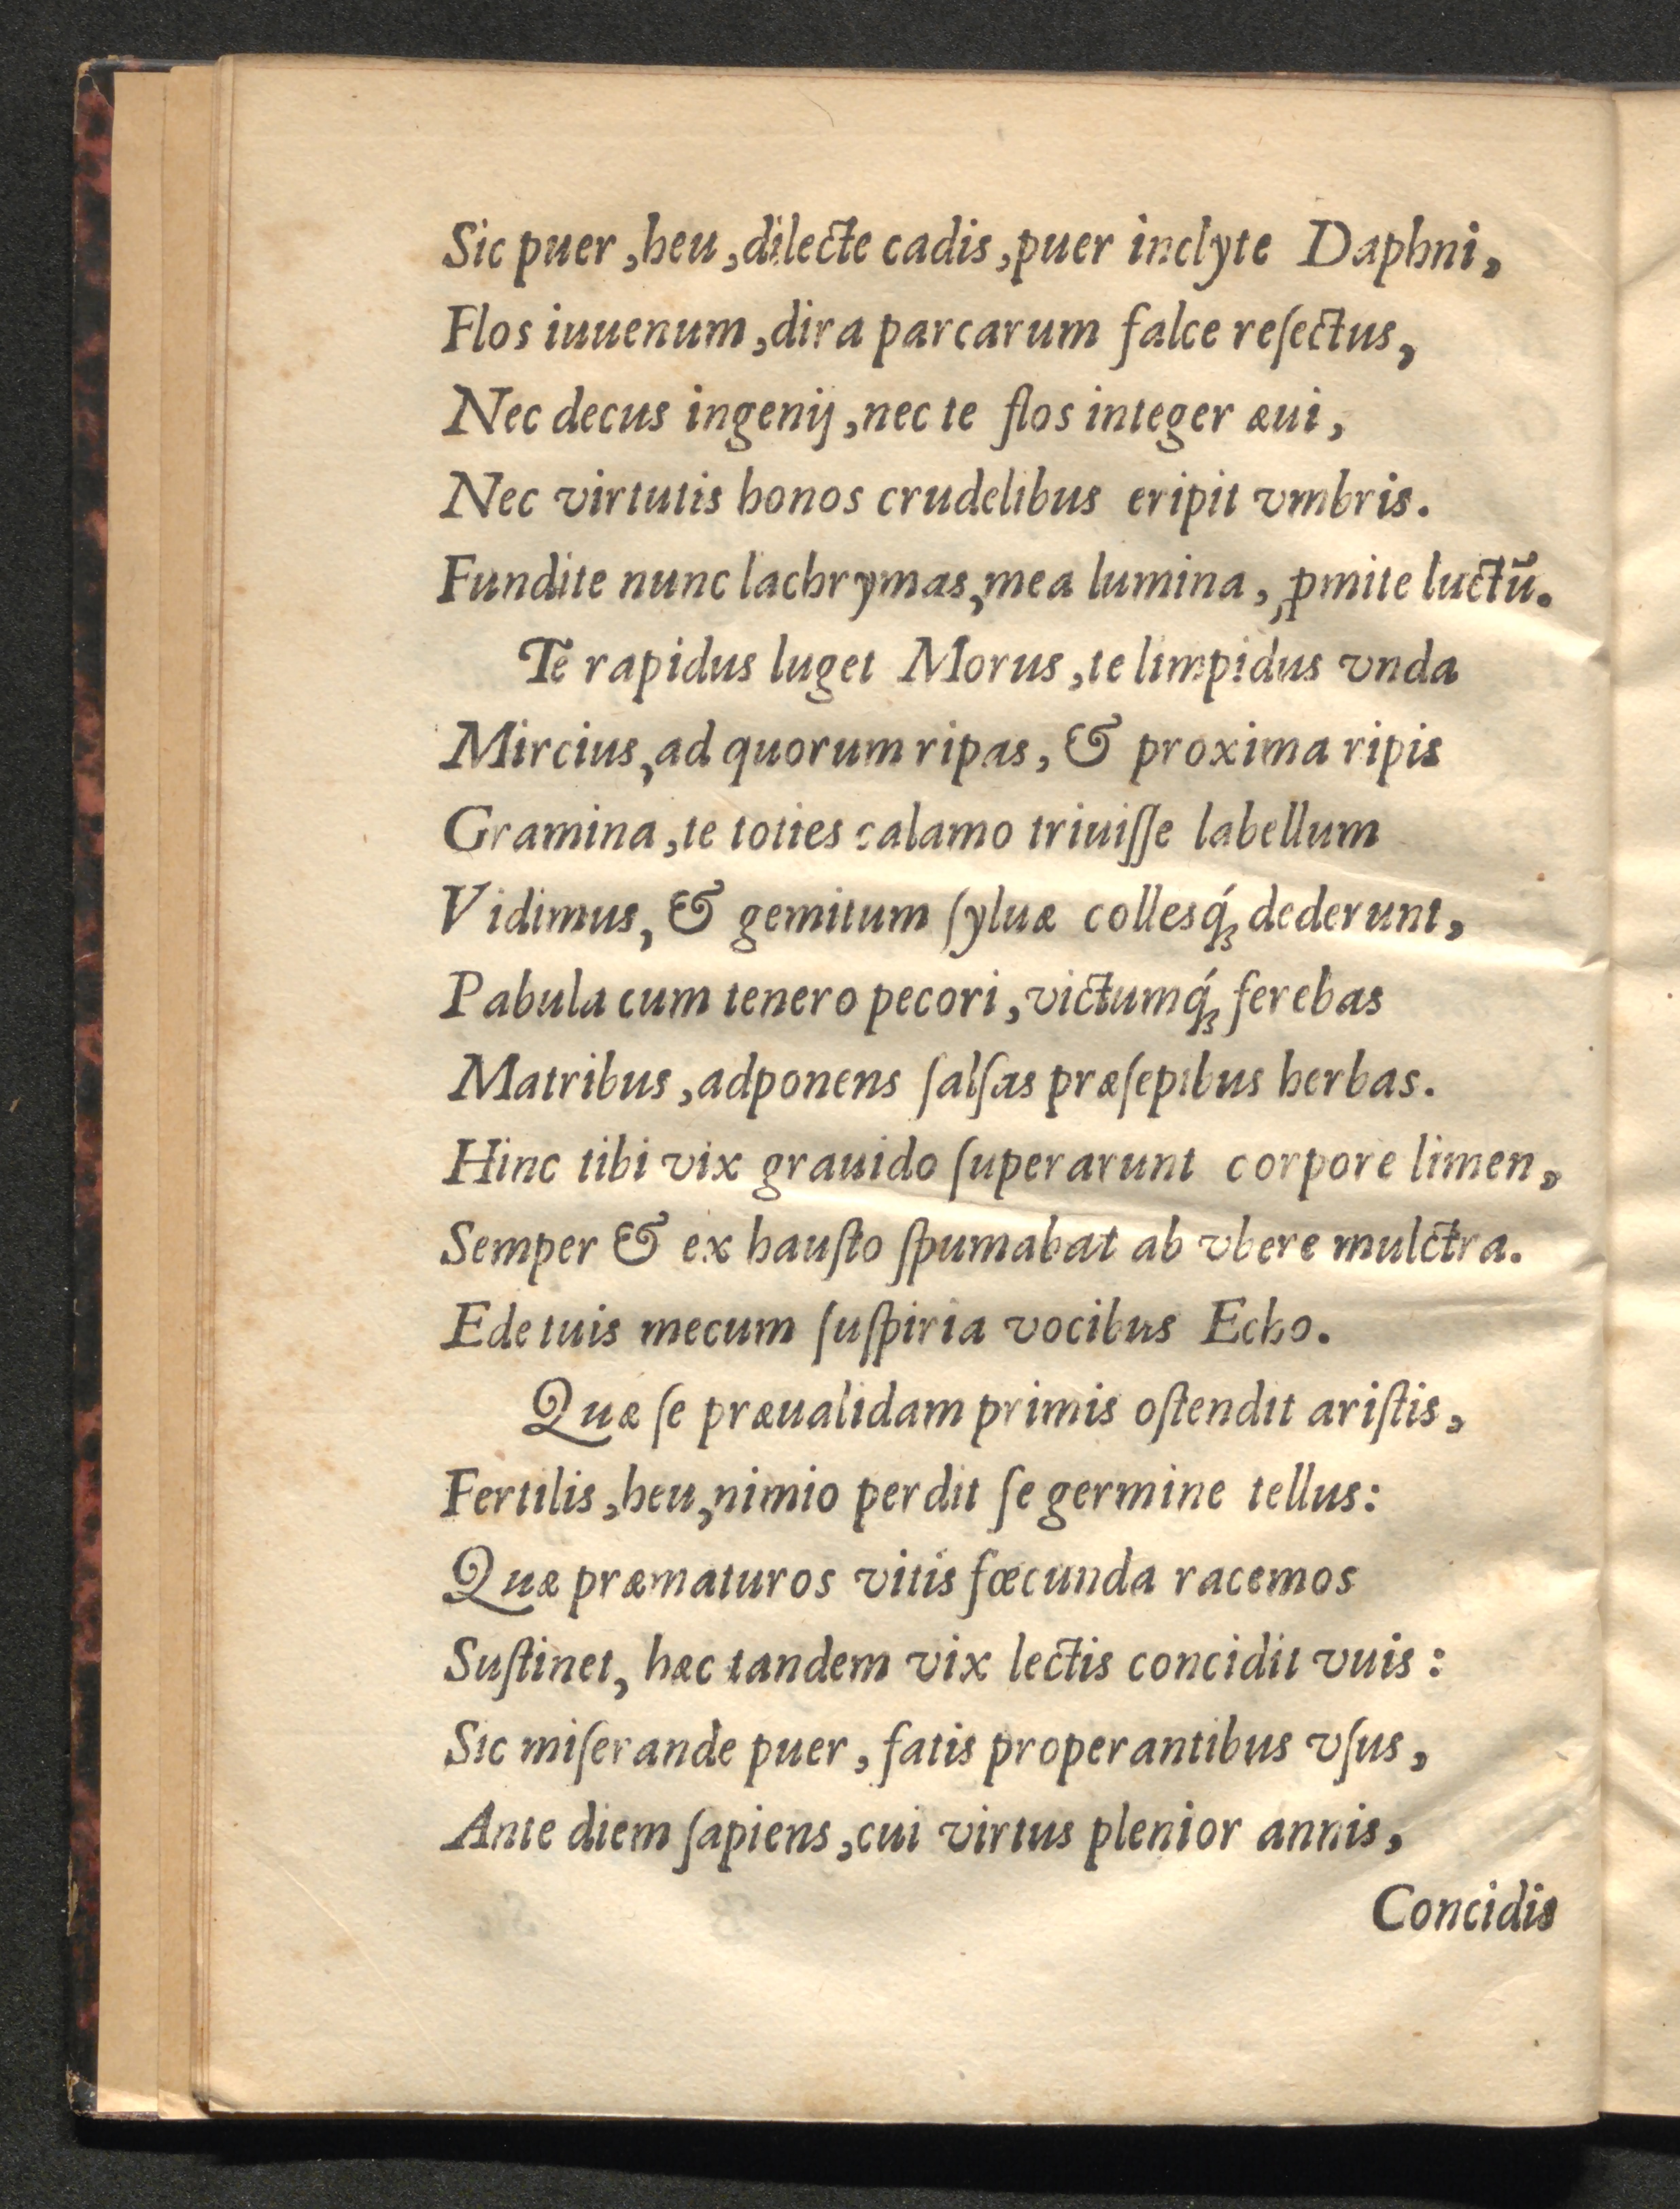 Sic puer, heu, dilecte cadis, puer inclyte Daphni,
Flos iuuenum, dira parcarum falce reſectus,
Nec decus ingenij, nec te flos integer æui,
Nec virtutis honos crudelibus eripit vmbris.
Fundite nunc lachrymas, mea lumina, ꝓmite luctū.
Te rapidus luget Morus, te limpidus vnda
Mircius, ad quorum ripas, & proxima ripis
Gramina, te toties calamo triuiſſe labellum
Vidimus, & gemitum ſyluæ colleſq́; dederunt,
Pabula cum tenero pecori, victumq́; ferebas
Matribus, adponens ſalſas præſepibus herbas.
Hinc tibi vix grauido ſuperarunt corpore limen,
Semper & ex hauſto ſpumabat ab vbere mulctra.
Ede tuis mecum ſuſpiria vocibus Echo.
Quæ ſe præualidam primis oſtendit ariſtis,
Fertilis, heu, nimio perdit ſe germine tellus:
Quæ præmaturos vitis fœcunda racemos
Suſtinet, hæc tandem vix lectis concidit vuis:
Sic miſerande puer, fatis properantibus vſus,
Ante diem ſapiens, cui virtus plenior annis,
Concidis